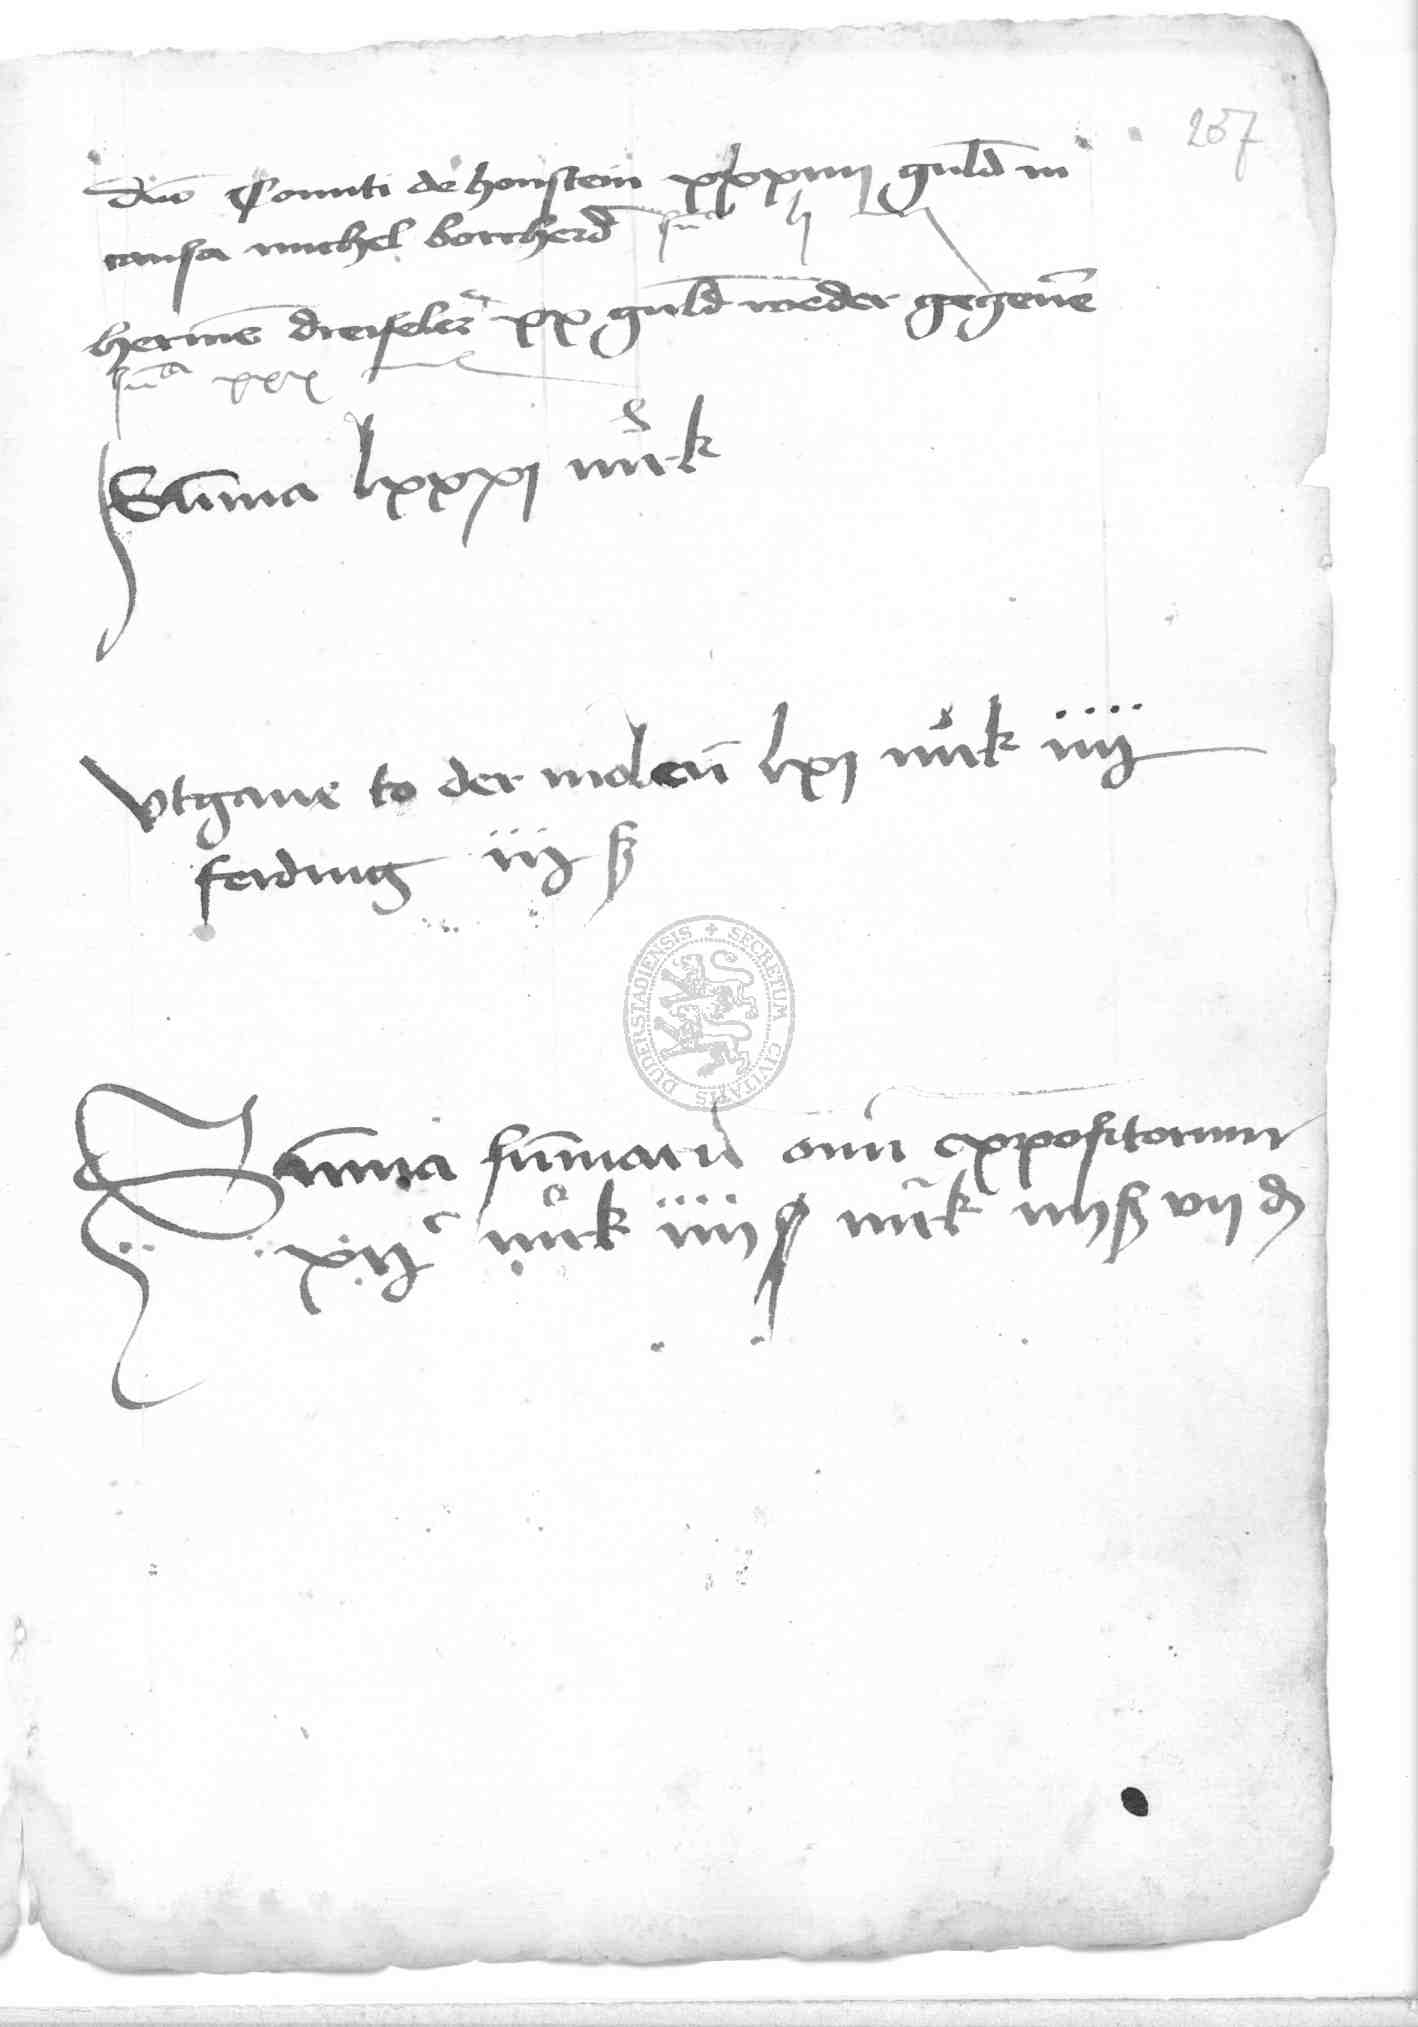 207
dno Comiti de honstein xxxiiii guld in
causa michel borcherd su^a lj
hermen dreyseler xx guld wedder gegeven
su^a xxx
Summa lxxxj mrk
Utgave to der molen lxj mrk iiij
ferding iij ß
DUDERSTADIENSIS SECRETUM CIVITATIS
Summa summarum omnium expositorum
xij^c mrk iiij mrk iiij ß vij d